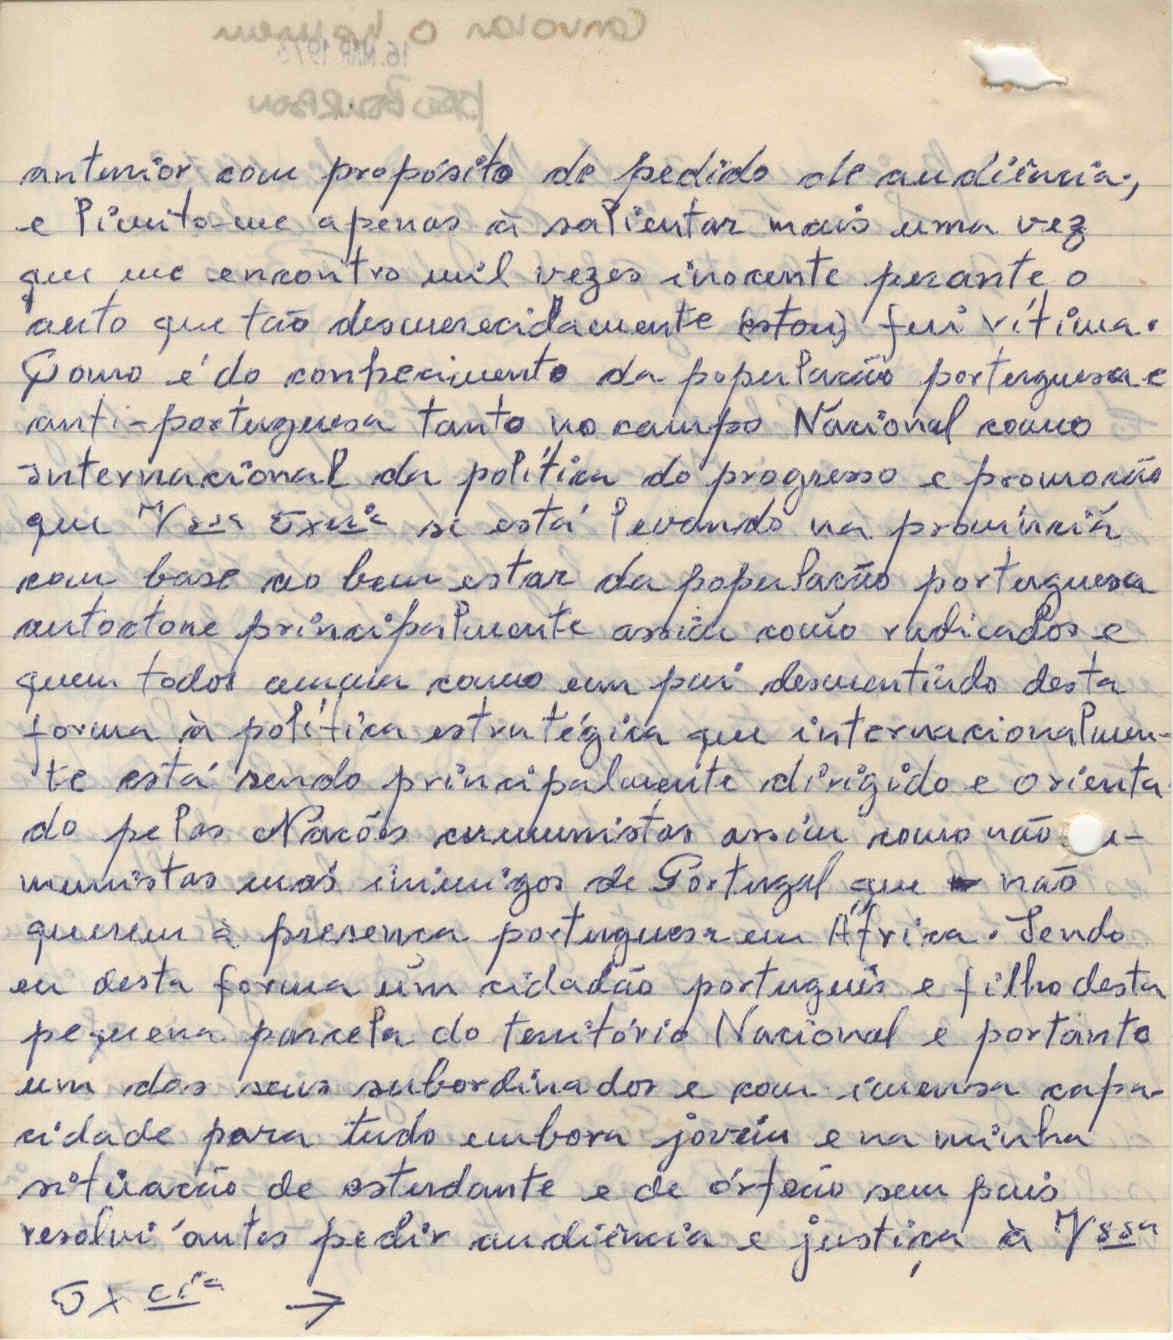 anterior com propósito de pedido de audiência,
e limito-me apenas à salientar mais uma vez
que me encontro mil vezes inocente perante o
auto que tão desmerecidamente (estou) fui vítima.
Como é do conhecimento da população portuguesa e
anti-portuguesa tanto no campo Nacional como
internacional da política do progresso e promoção
que Vssa Excia se está levando na província
com base ao bem estar da população portuguesa
autoctone principalmente assim como radicados e
quem todos amam como um pai desmentindo desta
forma à política estratégica que internacionalmen-
te está sendo principalmente dirigido e orienta
do pelas Nações cumunistas assim como não u-
munistas mas inimigos de Portugal que não
querem a presença portuguesa em África. Sendo
eu desta forma um cidadão português e filho desta
pequena parcela do território Nacional e portanto
um dos seus subordinados e com imensa capa-
cidade para tudo embora jovem e na minha
situação de estudante e de órfão sem pais
resolvi antes pedir audiência e justiça à Vssa
Excia →